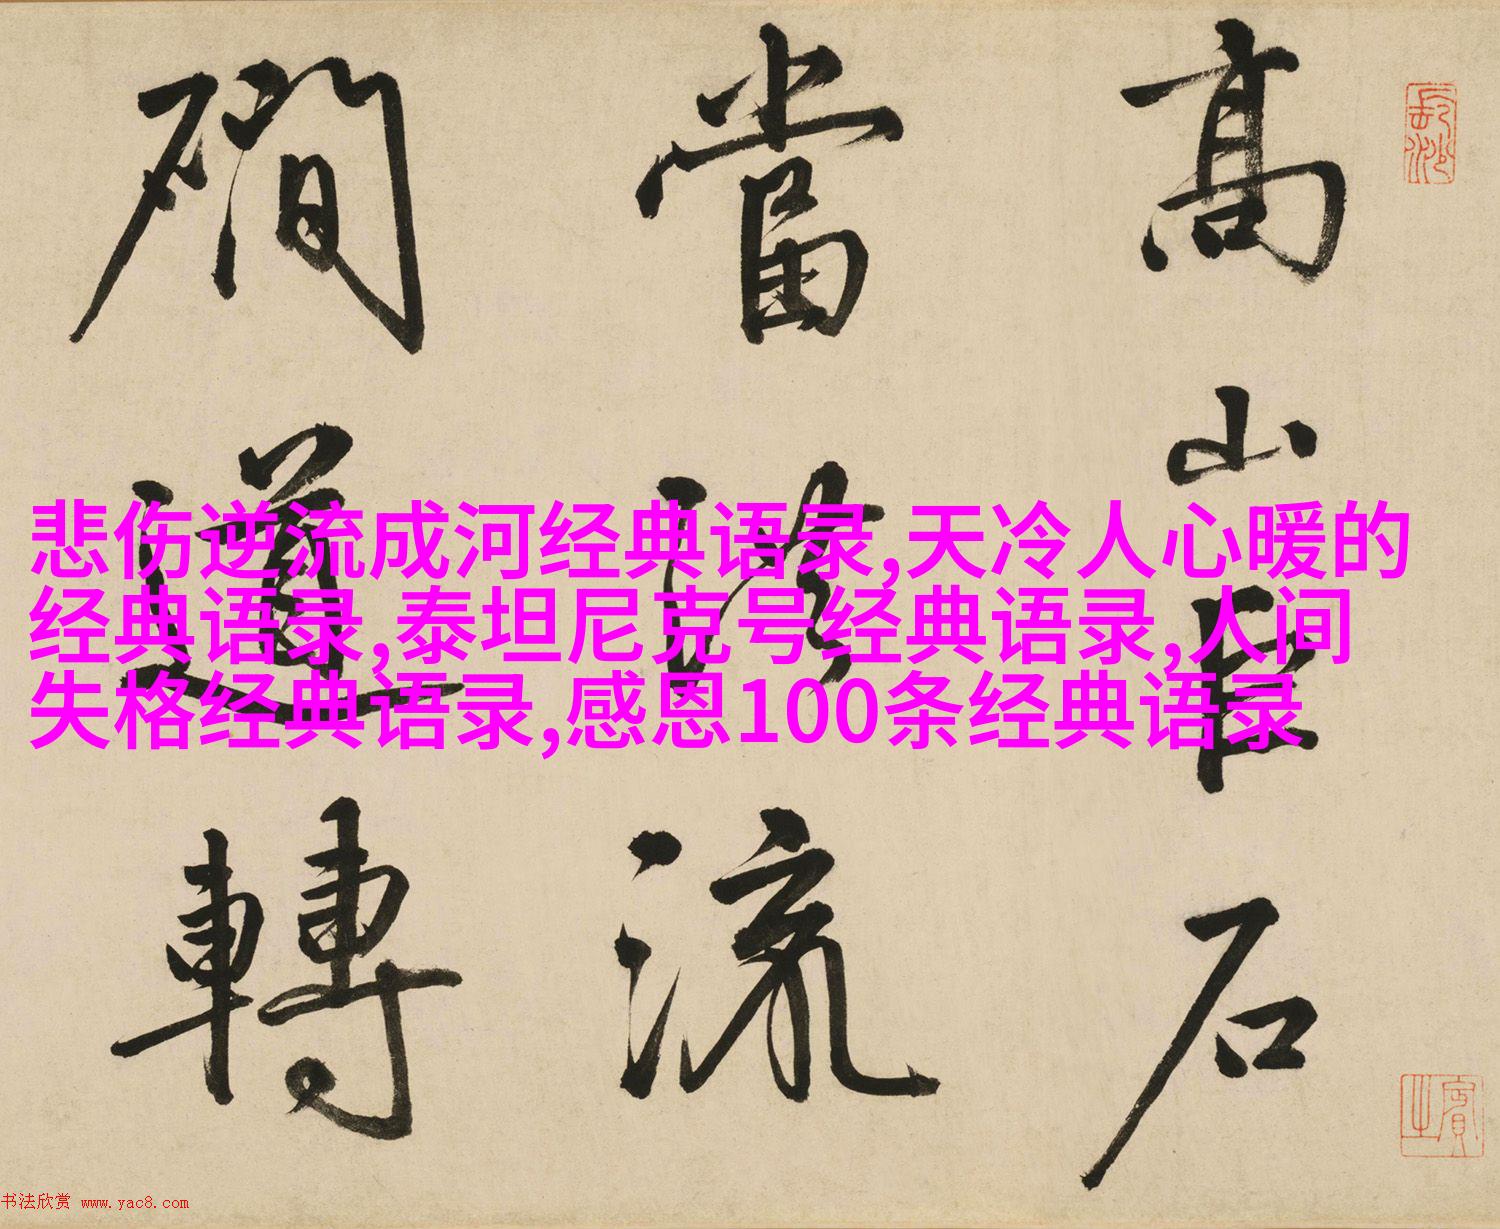 高山巨石
當路流
磵道轉
悲伤逆流成河经典语录,天冷人心暖的
经典语录,泰坦尼克号经典语录,人间
失格经典语录,感恩100条经典语录
长沙
书法欣赏 www.yac8.com